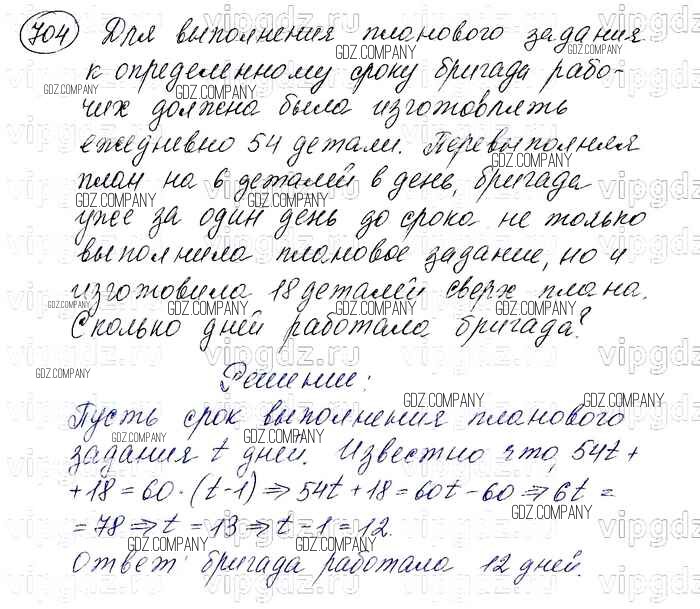 704 Для выполнения планового задания
к определенному сроку бригада рабо-
чих должна была изготовлять
ежедневно 54 детали. Перевыполняя
план на 6 деталей в день, бригада
уже за один день до срока не только
выполнила плановое задание, но и
изготовила 18 деталей сверх плана.
Сколько дней работала бригада?
Решение:
Пусть срок выполнения планового
задания t дней. Известно что, 54t +
+ 18 = 60 · (t - 1) ⇒ 54t + 18 = 60t - 60 ⇒ 6t =
= 78 ⇒ t = 13 ⇒ t - 1 = 12.
Ответ: бригада работала 12 дней.